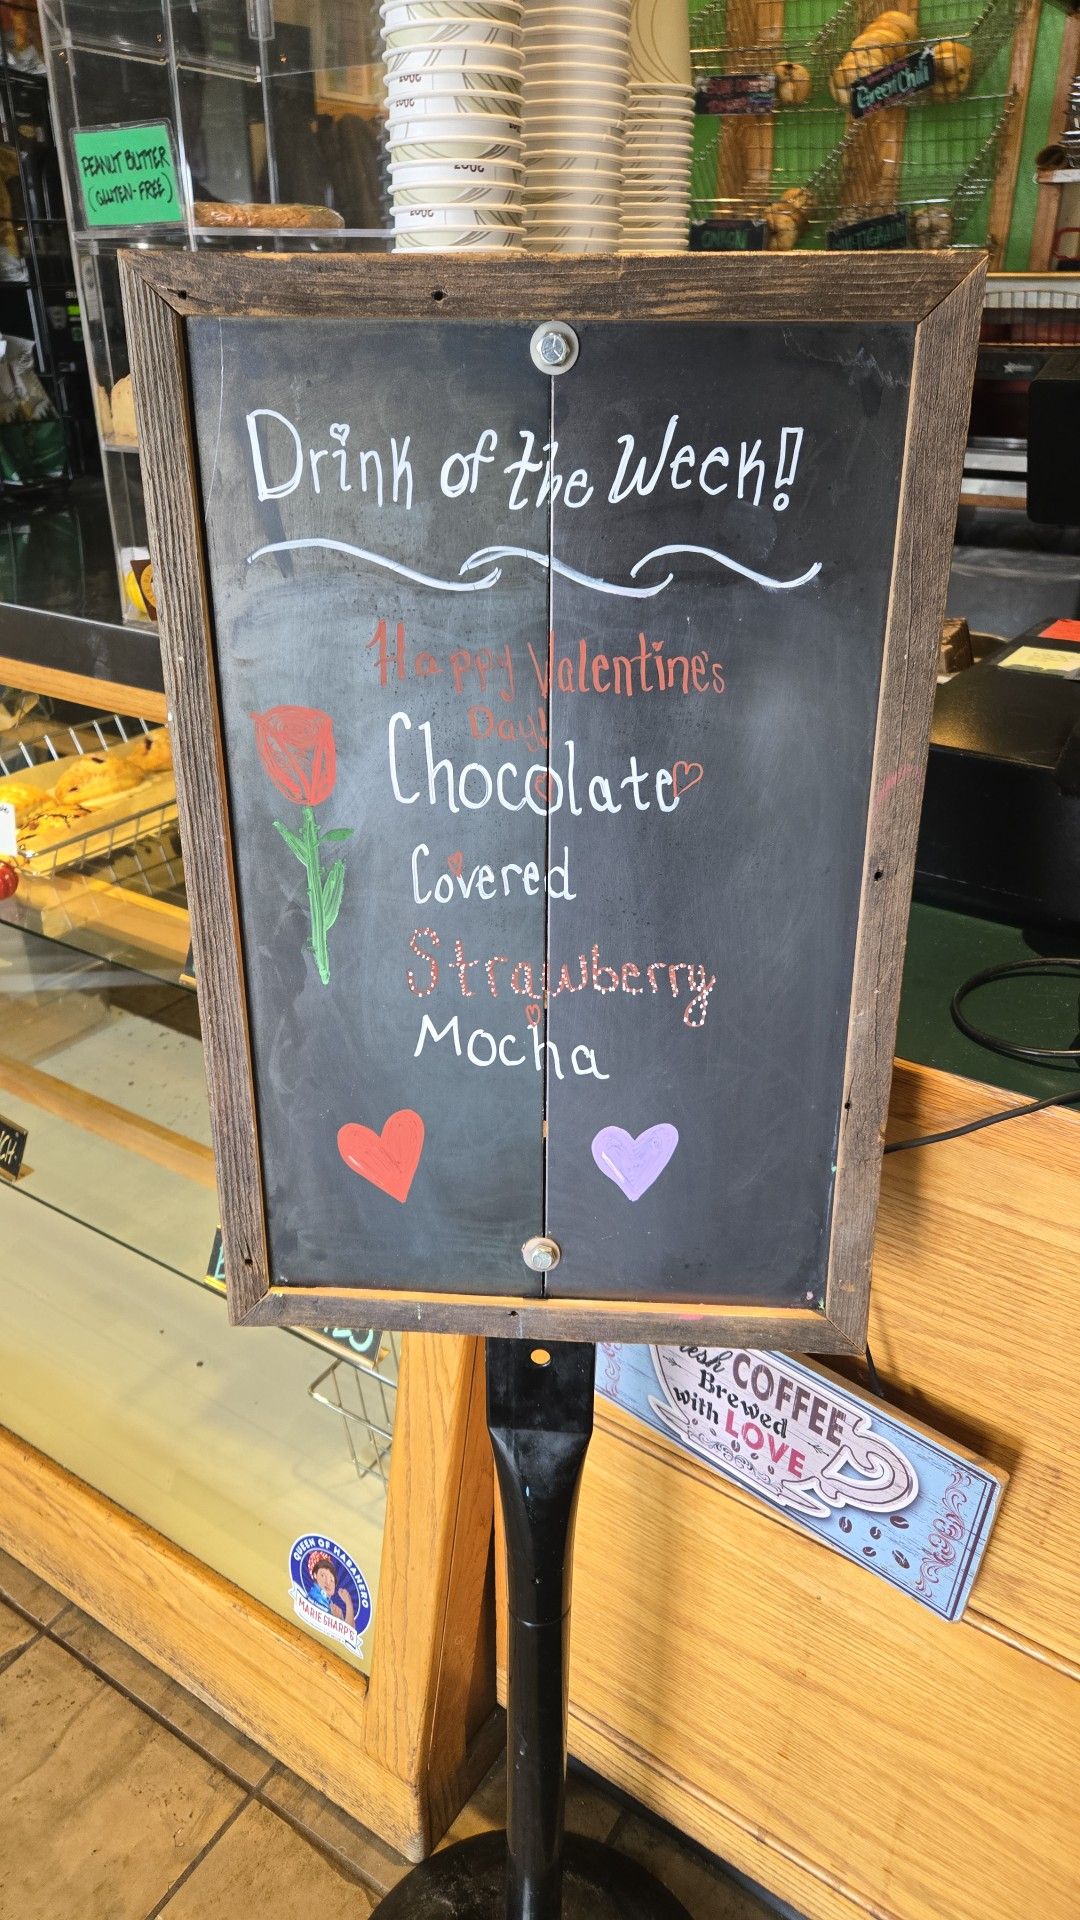 PEANUT BUTTER
(GLUTEN-FREE)
Green Chili
Drink of the Week!
Happy Valentine's
Day!
Chocolate
Covered
Strawberry
Mocha
COFFEE
Brewed
with LOVE
QUEEN OF HABANERO
MARIE SHARP'S